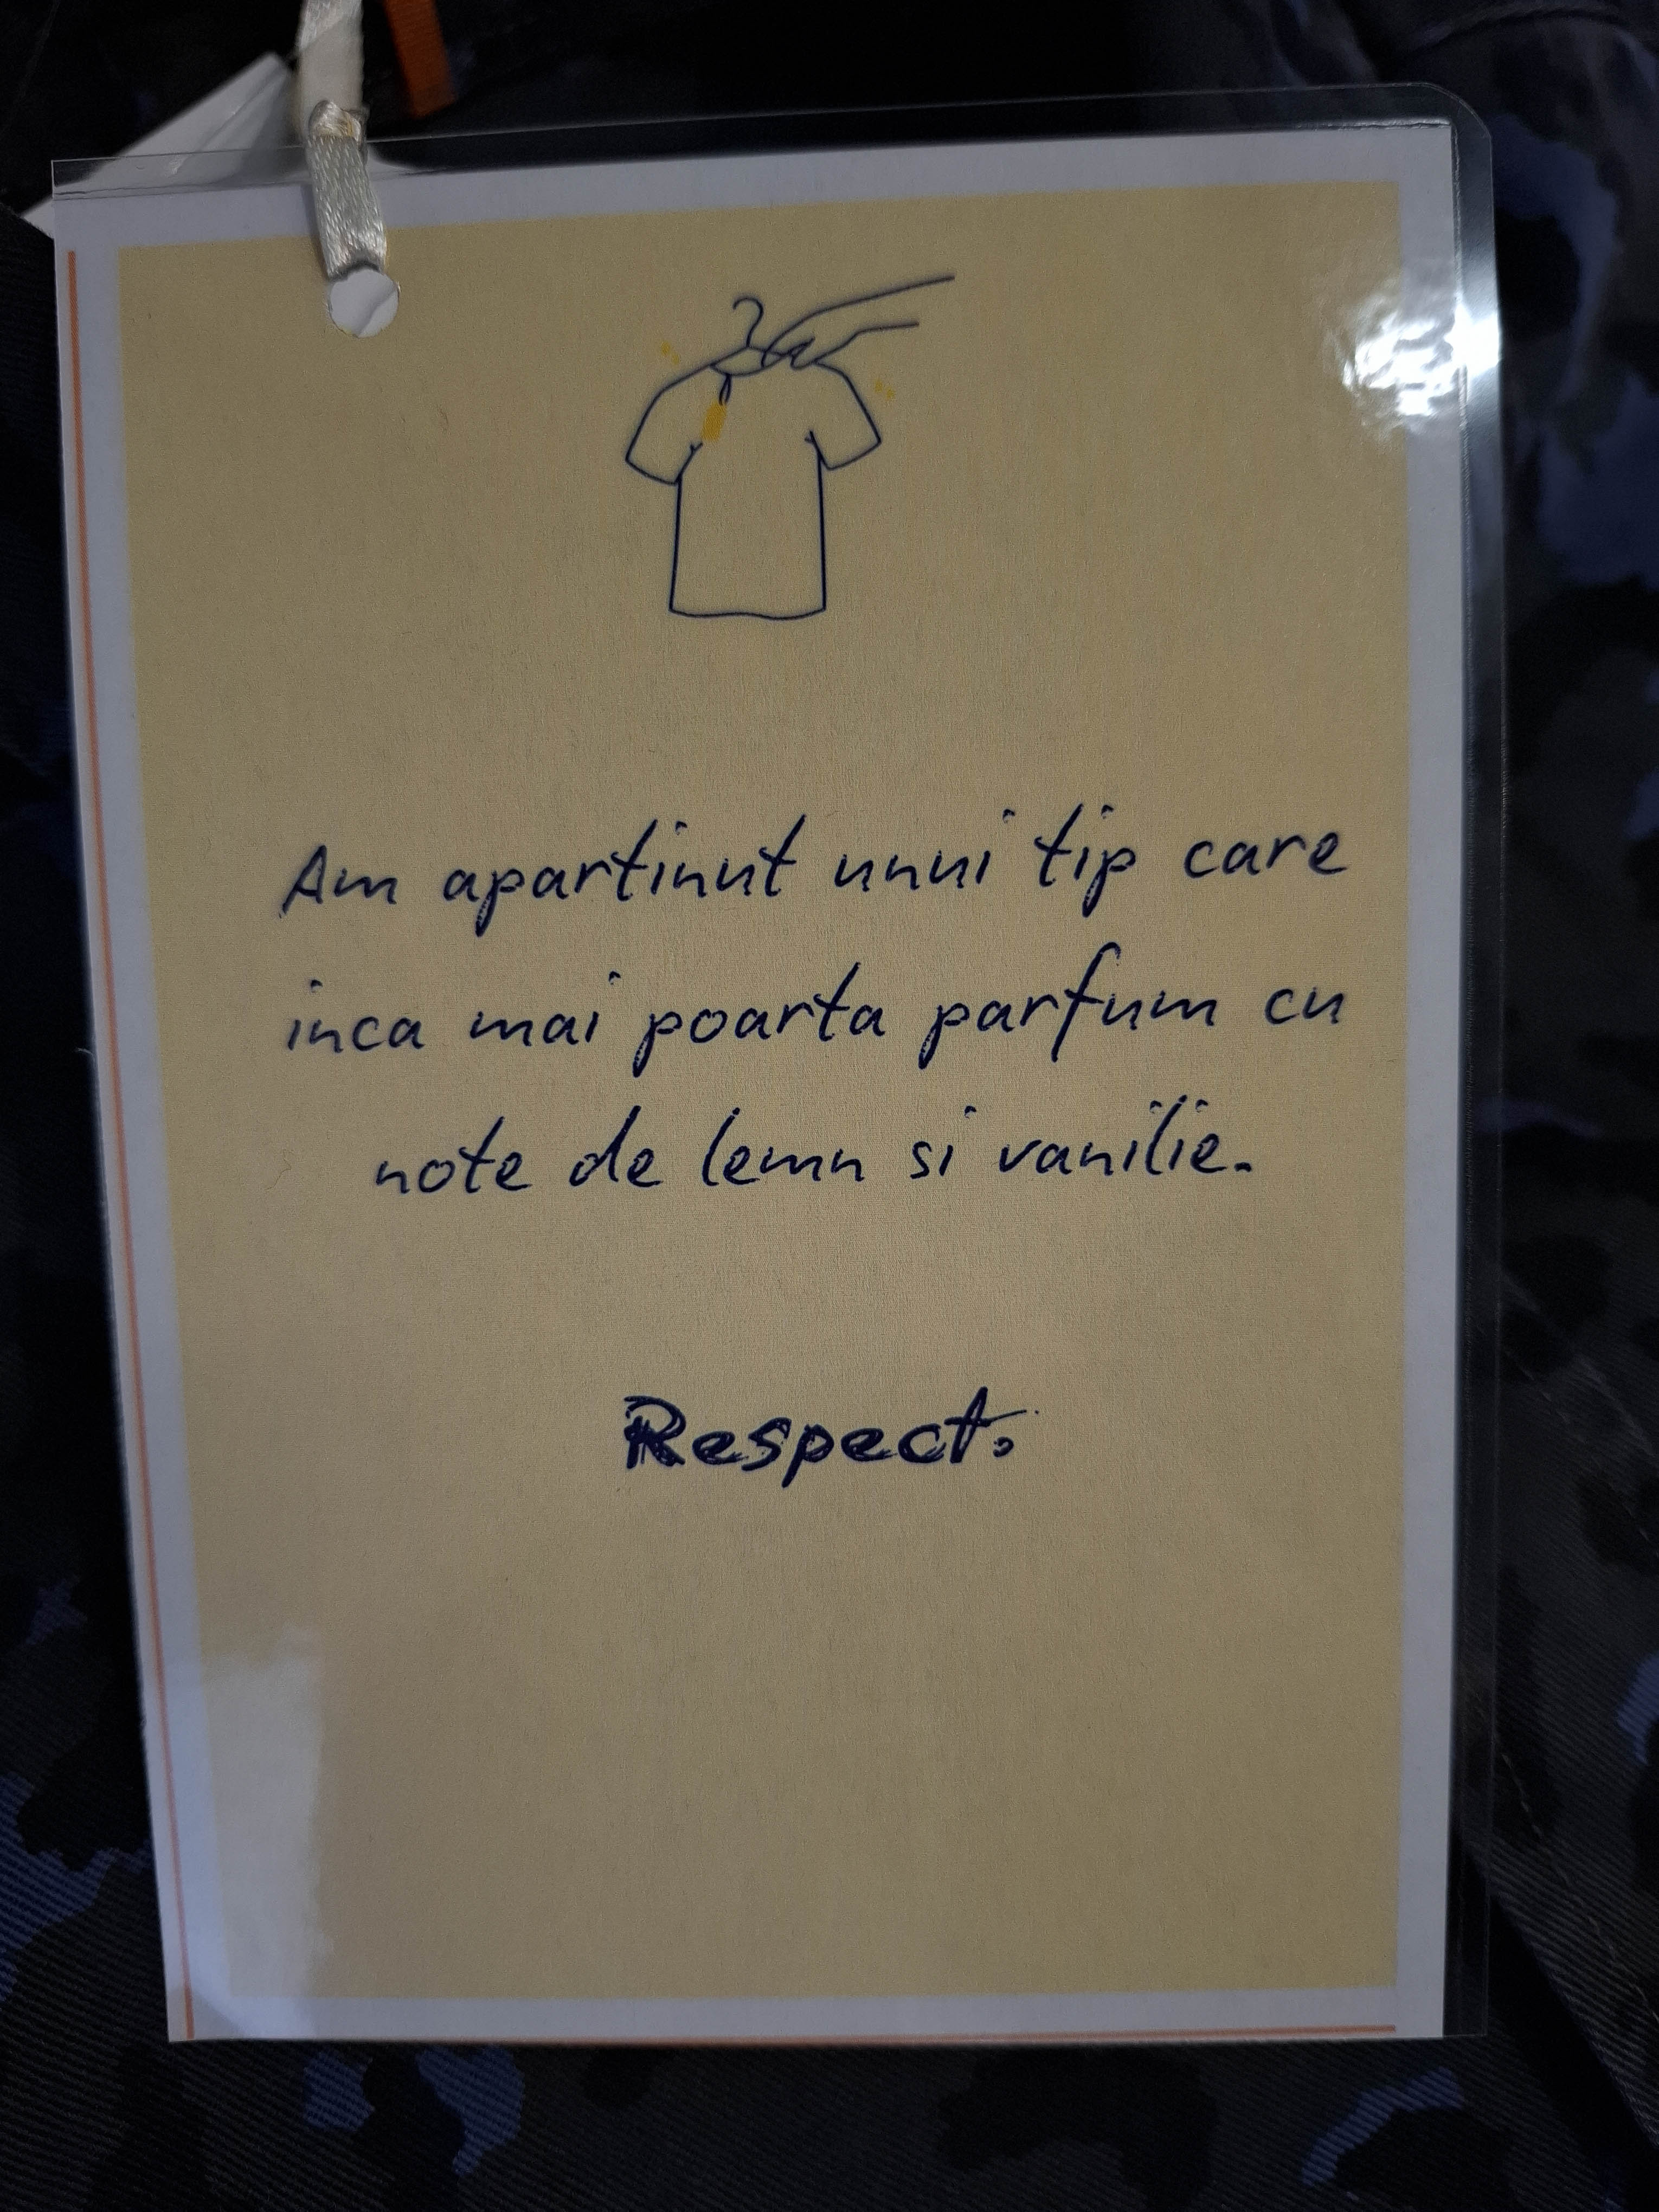 Am apartinut unui tip care
inca mai poarta parfum cu
note de lemn si vanilie.
Respect.